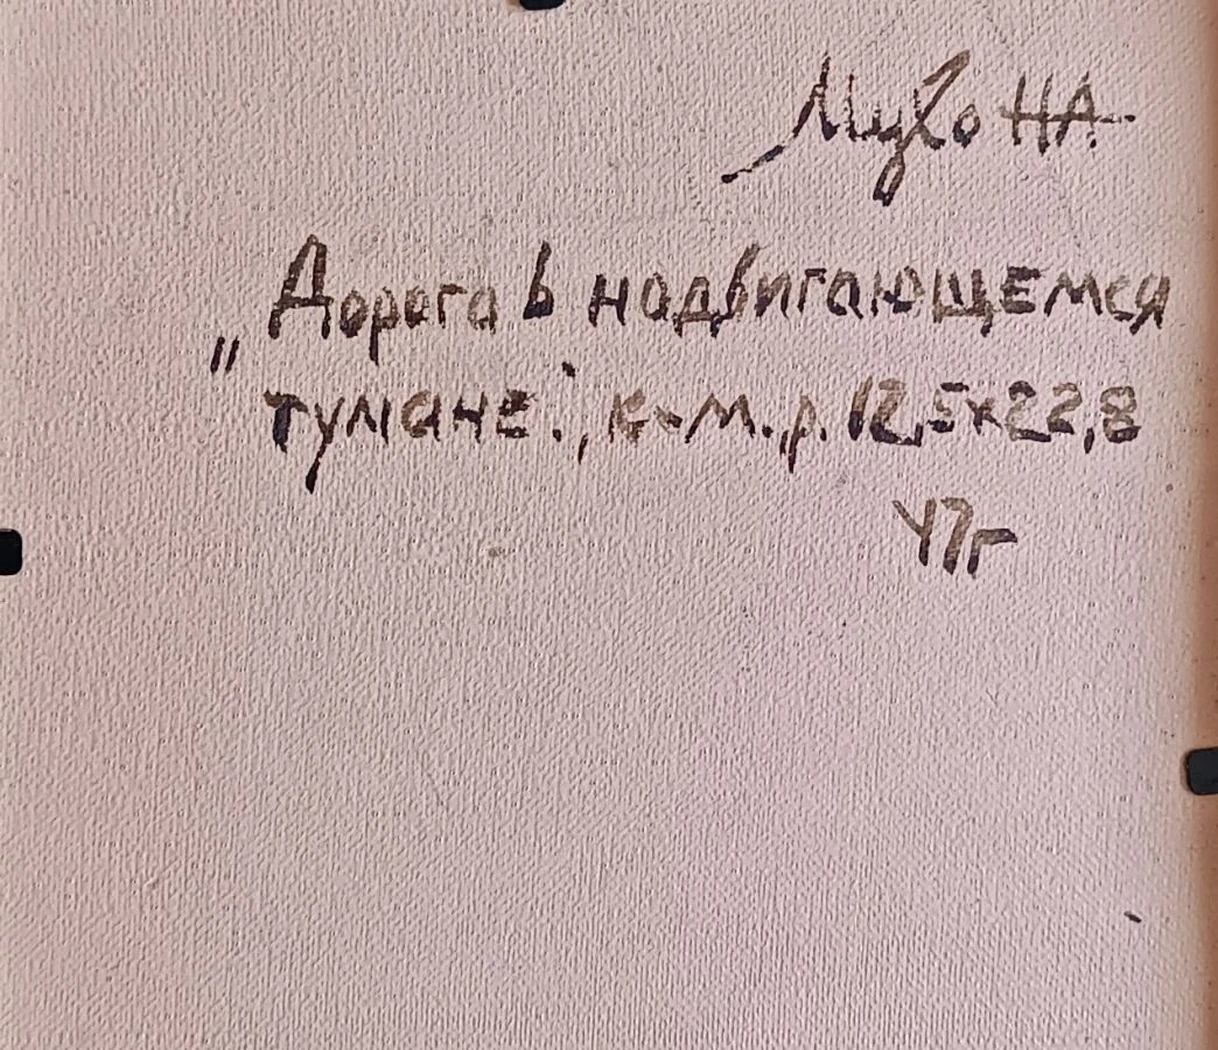 Мухо НА
„Дорога в надвигающемся
тумане", к-м.р. 12,5x22,8
47г